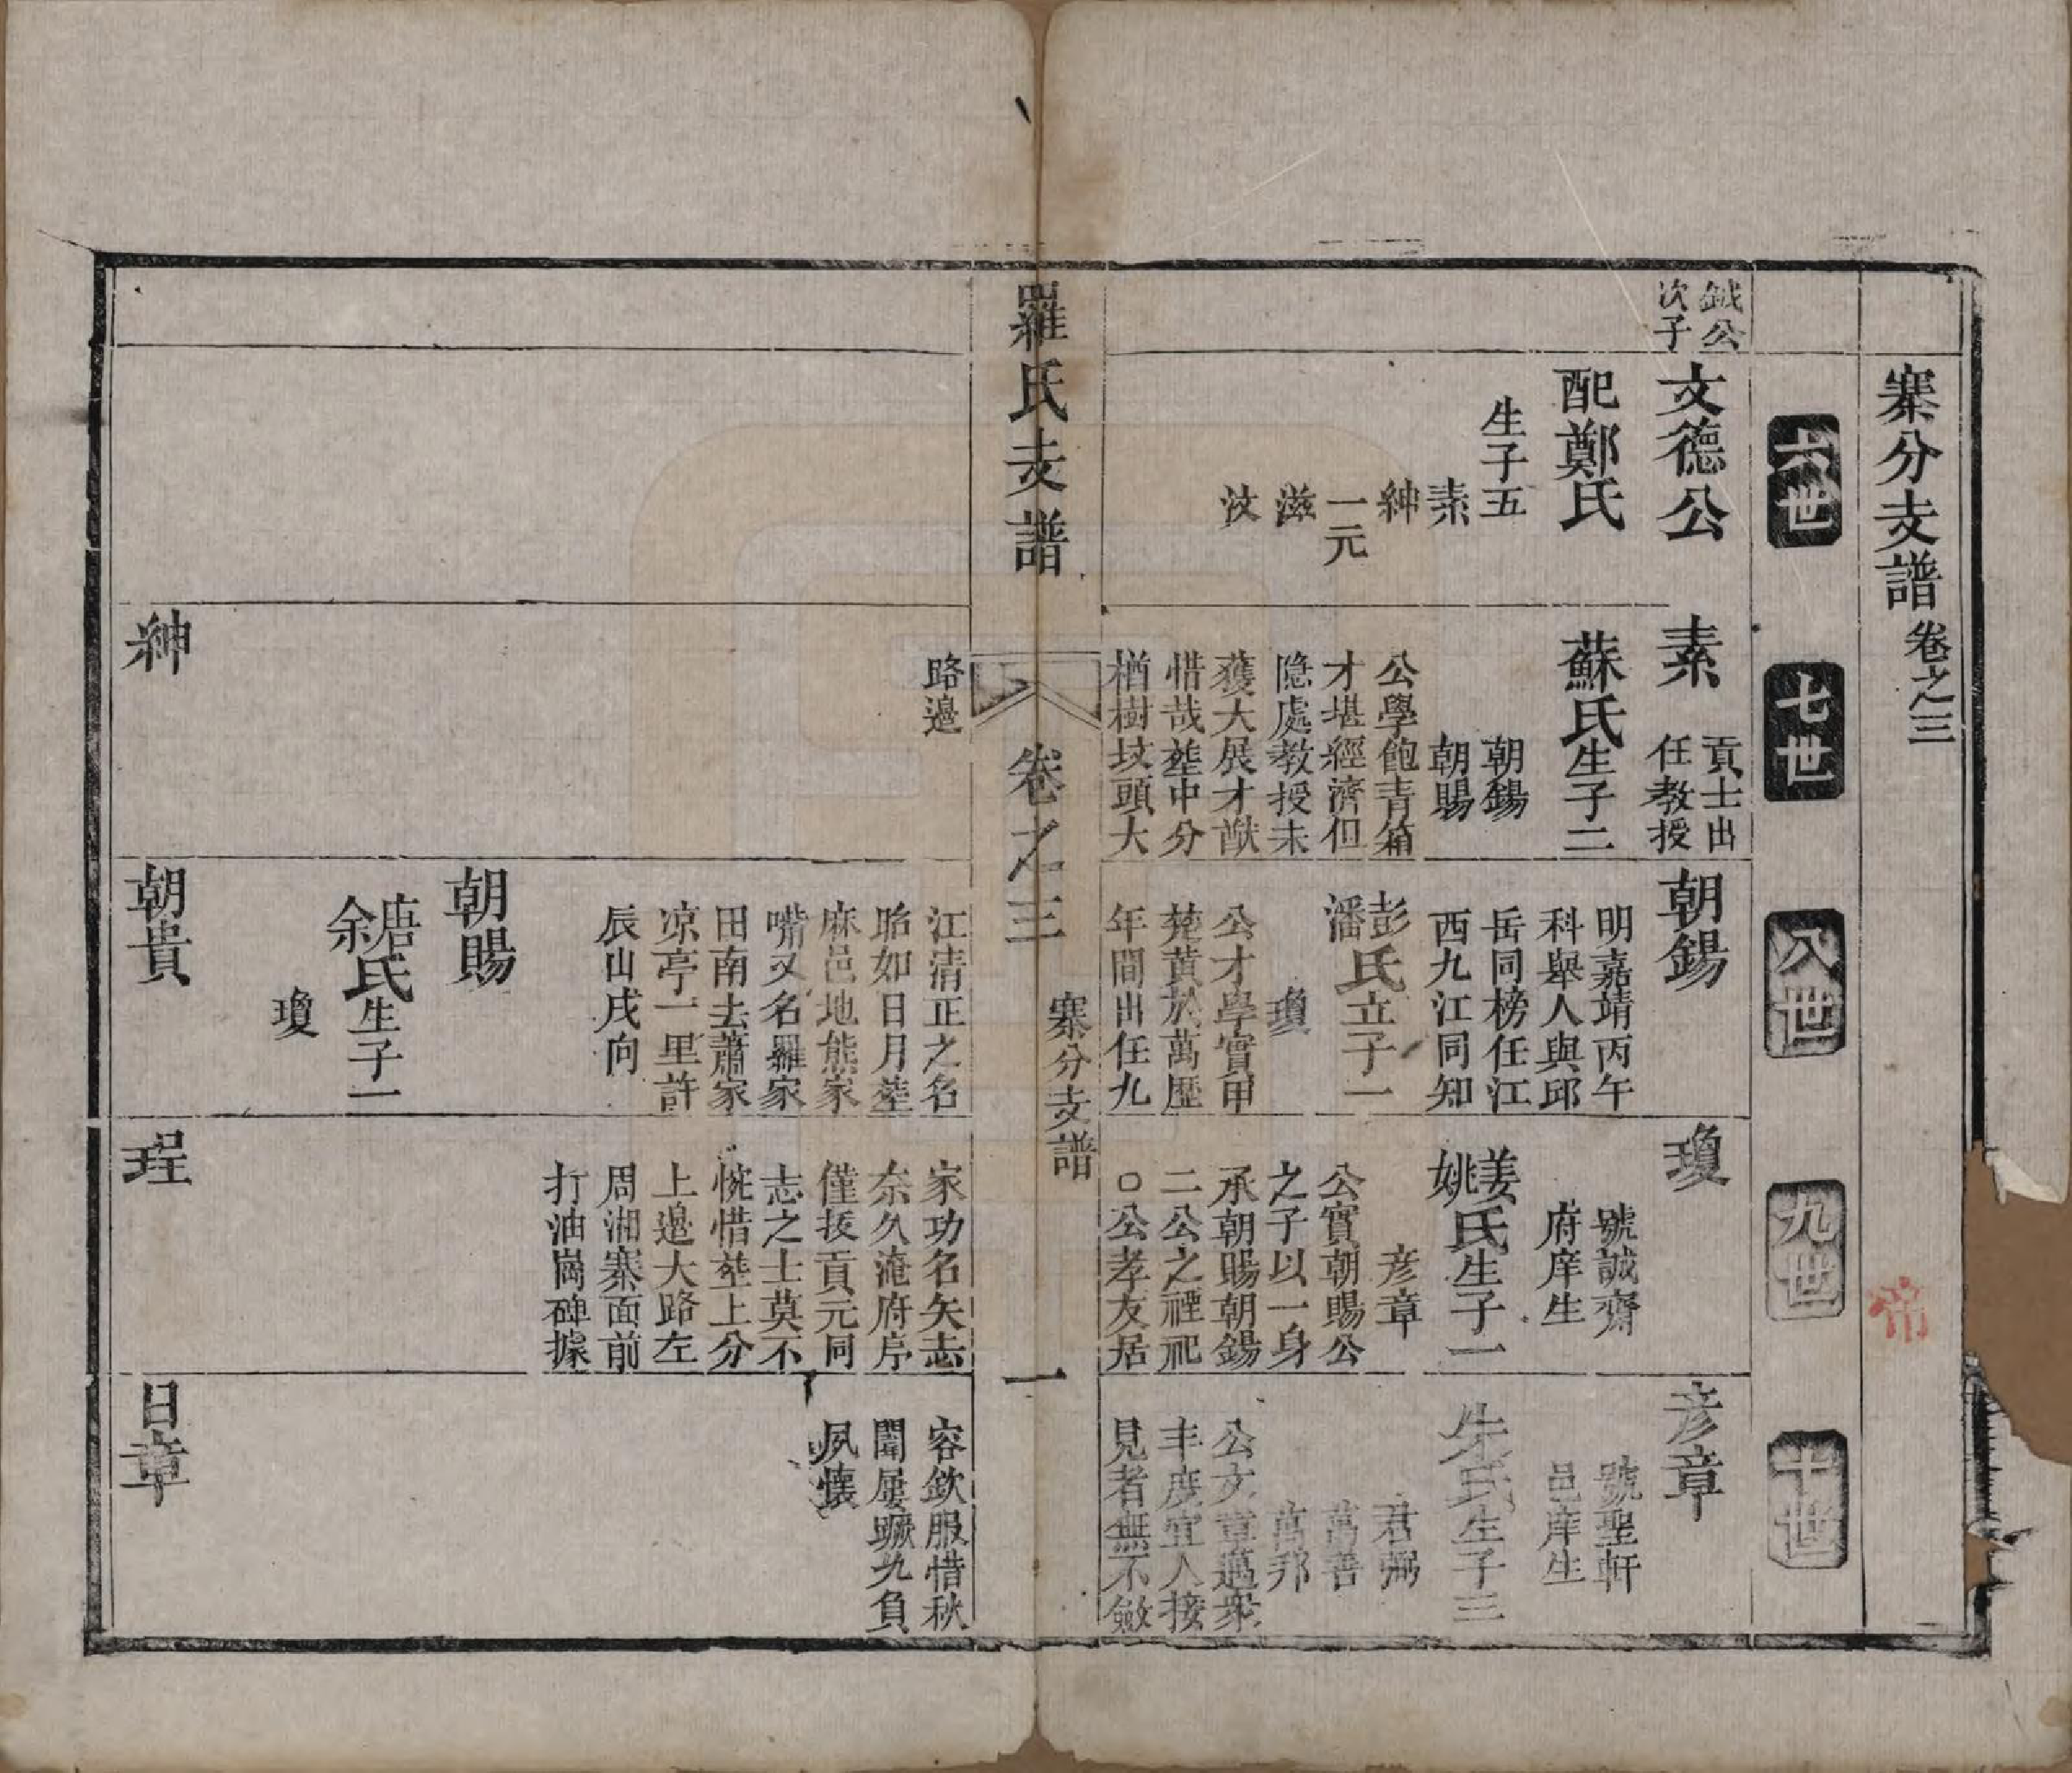 寨分支譜 卷之三
帝
六世
七世
八世
九世
十世
鉞公
次子
文德公
配鄭氏
生子五
素
紳
一元
滋
汶
素
貢士出
任教授
蘇氏生子二
朝鍚
朝賜
公學飽青箱
才堪經濟但
隐處教授未
獲大展才猷
惜哉塟中分
楢樹坟頭大
朝鍚
明嘉靖丙午
科舉人與邱
岳同榜任江
西九江同知
彭
潘
氏立子一
瓊
公才學實甲
楚黄於萬歷
年間出任九
瓊
號誠齋
府庠生
姜
姚
氏生子一
彦章
公實朝賜公
之子以一身
承朝賜朝鍚
二公之禋祀
○公孝友居
彦章
號聖軒
邑庠生
朱氏生子三
君弼
萬善
萬邦
公文章邁衆
丰度宜人接
見者無不斂
羅氏支譜
卷之三
寨分支譜
一
路邉
江清正之名
昭如日月塟
麻邑地熊家
嘴又名羅家
田南去蕭家
凉亭一里許
辰山戌向
家功名矢志
奈久淹府庠
僅拔貢元同
志之士莫不
惋惜塟上分
上邉大路左
周湘寨面前
打油崗碑據
容欽服惜秋
闈屢蹶九負
夙懐
朝賜
唐
余
氏生子一
瓊
紳
朝貴
珵
日章